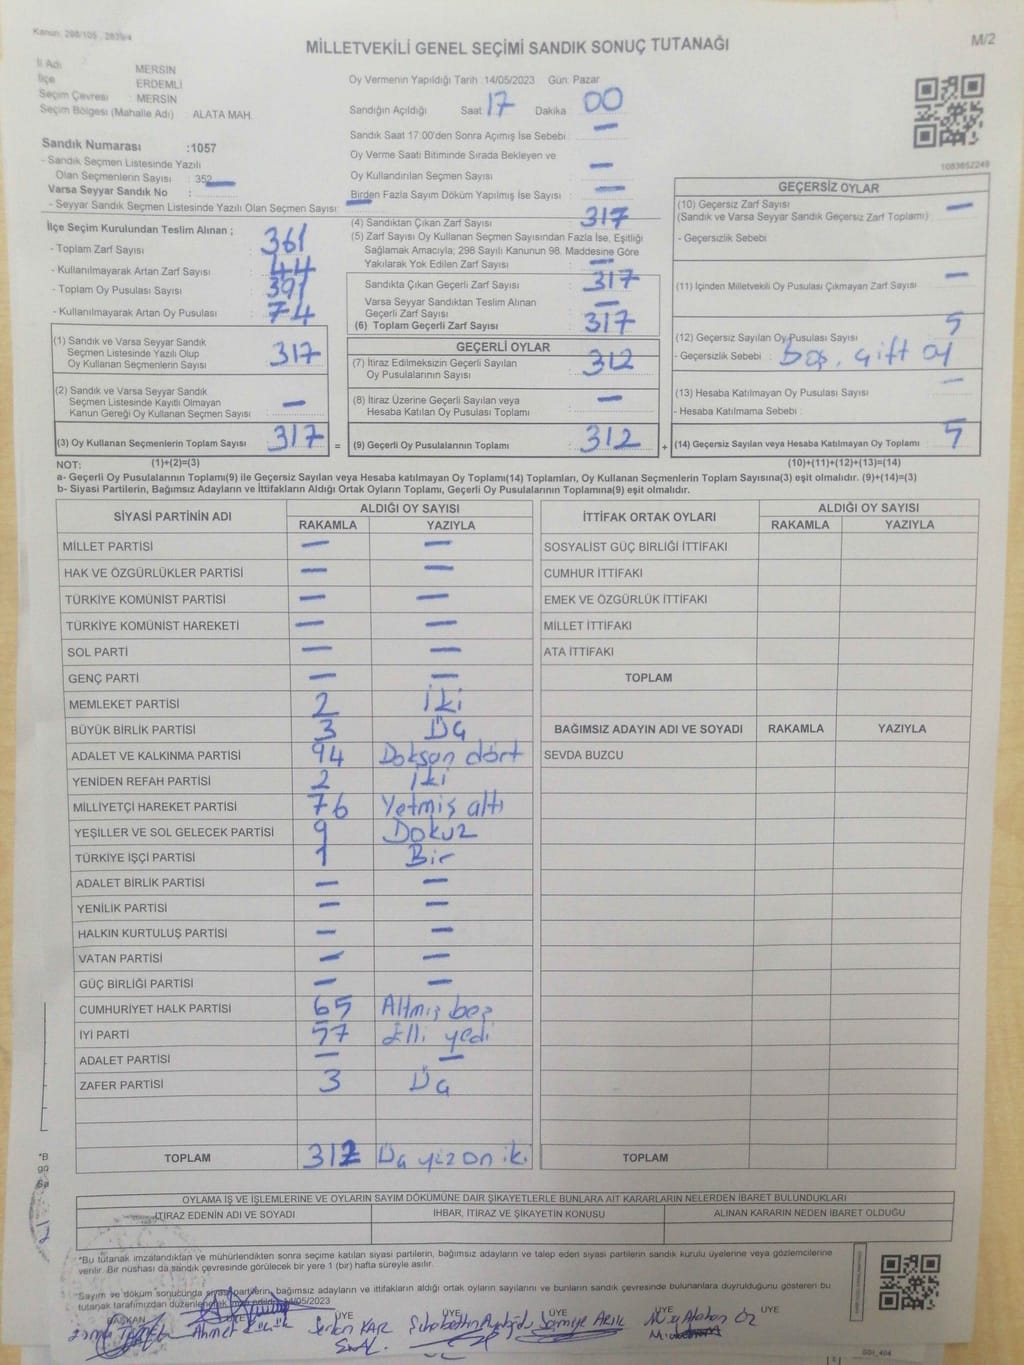 Kanun: 298/105 , 2839/4
MİLLETVEKİLİ GENEL SEÇİMİ SANDIK SONUÇ TUTANAĞI
M/2
İl Adı : MERSİN
İlçe : ERDEMLİ
Seçim Çevresi : MERSİN
Seçim Bölgesi (Mahalle Adı) : ALATA MAH.
Oy Vermenin Yapıldığı Tarih :14/05/2023 Gün: Pazar
Sandığın Açıldığı Saat 17 Dakika 00
Sandık Saat 17:00'den Sonra Açımış İse Sebebi : —
Oy Verme Saati Bitiminde Sırada Bekleyen ve
Oy Kullandırılan Seçmen Sayısı : —
Birden Fazla Sayım Döküm Yapılmış İse Sayısı : —
1083652249
Sandık Numarası :1057
- Sandık Seçmen Listesinde Yazılı
Olan Seçmenlerin Sayısı : 352
Varsa Seyyar Sandık No :
- Seyyar Sandık Seçmen Listesinde Yazılı Olan Seçmen Sayısı: —
İlçe Seçim Kurulundan Teslim Alınan ;
- Toplam Zarf Sayısı : 361
- Kullanılmayarak Artan Zarf Sayısı : 44
- Toplam Oy Pusulası Sayısı : 391
- Kullanılmayarak Artan Oy Pusulası : 74
(1) Sandık ve Varsa Seyyar Sandık
Seçmen Listesinde Yazılı Olup
Oy Kullanan Seçmenlerin Sayısı : 317
(2) Sandık ve Varsa Seyyar Sandık
Seçmen Listesinde Kayıtlı Olmayan
Kanun Gereği Oy Kullanan Seçmen Sayısı : —
(3) Oy Kullanan Seçmenlerin Toplam Sayısı : 317 =
(4) Sandıktan Çıkan Zarf Sayısı : 317
(5) Zarf Sayısı Oy Kullanan Seçmen Sayısından Fazla İse, Eşitliği
Sağlamak Amacıyla, 298 Sayılı Kanunun 98. Maddesine Göre
Yakılarak Yok Edilen Zarf Sayısı : —
Sandıkta Çıkan Geçerli Zarf Sayısı : 317
Varsa Seyyar Sandıktan Teslim Alınan
Geçerli Zarf Sayısı : —
(6) Toplam Geçerli Zarf Sayısı : 317
GEÇERLİ OYLAR
(7) İtiraz Edilmeksizin Geçerli Sayılan
Oy Pusulalarının Sayısı : 312
(8) İtiraz Üzerine Geçerli Sayılan veya
Hesaba Katılan Oy Pusulası Toplamı : —
(9) Geçerli Oy Pusulalarının Toplamı : 312 +
GEÇERSİZ OYLAR
(10) Geçersiz Zarf Sayısı : —
(Sandık ve Varsa Seyyar Sandık Geçersiz Zarf Toplamı)
- Geçersizlik Sebebi :
(11) İçinden Milletvekili Oy Pusulası Çıkmayan Zarf Sayısı : —
(12) Geçersiz Sayılan Oy Pusulası Sayısı : 5
- Geçersizlik Sebebi : boş, çift oy
(13) Hesaba Katılmayan Oy Pusulası Sayısı : —
- Hesaba Katılmama Sebebi :
(14) Geçersiz Sayılan veya Hesaba Katılmayan Oy Toplamı : 5
NOT: (1)+(2)=(3) (10)+(11)+(12)+(13)=(14)
a- Geçerli Oy Pusulalarının Toplamı(9) ile Geçersiz Sayılan veya Hesaba katılmayan Oy Toplamı(14) Toplamları, Oy Kullanan Seçmenlerin Toplam Sayısına(3) eşit olmalıdır. (9)+(14)=(3)
b- Siyasi Partilerin, Bağımsız Adayların ve İttifakların Aldığı Ortak Oyların Toplamı, Geçerli Oy Pusulalarının Toplamına(9) eşit olmalıdır.
SİYASİ PARTİNİN ADI ALDIĞI OY SAYISI
RAKAMLA YAZIYLA
MİLLET PARTİSİ — —
HAK VE ÖZGÜRLÜKLER PARTİSİ — —
TÜRKİYE KOMÜNİST PARTİSİ — —
TÜRKİYE KOMÜNİST HAREKETİ — —
SOL PARTİ — —
GENÇ PARTİ — —
MEMLEKET PARTİSİ 2 İki
BÜYÜK BİRLİK PARTİSİ 3 Üç
ADALET VE KALKINMA PARTİSİ 94 Doksan dört
YENİDEN REFAH PARTİSİ 2 İki
MİLLİYETÇİ HAREKET PARTİSİ 76 Yetmiş altı
YEŞİLLER VE SOL GELECEK PARTİSİ 9 Dokuz
TÜRKİYE İŞÇİ PARTİSİ 1 Bir
ADALET BİRLİK PARTİSİ — —
YENİLİK PARTİSİ — —
HALKIN KURTULUŞ PARTİSİ — —
VATAN PARTİSİ — —
GÜÇ BİRLİĞİ PARTİSİ — —
CUMHURİYET HALK PARTİSİ 65 Altmış beş
İYİ PARTİ 57 Elli yedi
ADALET PARTİSİ — —
ZAFER PARTİSİ 3 Üç
TOPLAM 312 Üç yüz on iki
İTTİFAK ORTAK OYLARI ALDIĞI OY SAYISI
RAKAMLA YAZIYLA
SOSYALİST GÜÇ BİRLİĞİ İTTİFAKI
CUMHUR İTTİFAKI
EMEK VE ÖZGÜRLÜK İTTİFAKI
MİLLET İTTİFAKI
ATA İTTİFAKI
TOPLAM
BAĞIMSIZ ADAYIN ADI VE SOYADI RAKAMLA YAZIYLA
SEVDA BUZCU
TOPLAM
OYLAMA İŞ VE İŞLEMLERİNE VE OYLARIN SAYIM DÖKÜMÜNE DAİR ŞİKAYETLERLE BUNLARA AİT KARARLARIN NELERDEN İBARET BULUNDUKLARI
İTİRAZ EDENİN ADI VE SOYADI İHBAR, İTİRAZ VE ŞİKAYETİN KONUSU ALINAN KARARIN NEDEN İBARET OLDUĞU
*Bu tutanak imzalandıktan ve mühürlendikten sonra seçime katılan siyasi partilerin, bağımsız adayların ve talep eden siyasi partilerin sandık kurulu üyelerine veya gözlemcilerine
verilir. Bir nüshası da sandık çevresinde görülecek bir yere 1 (bir) hafta süreyle asılır.
*Sayım ve döküm sonucunda siyasi partilerin, bağımsız adayların ve ittifakların aldığı ortak oyların sayılarını ve bunların sandık çevresinde bulunanlara duyrulduğunu gösteren bu
tutanak tarafımızdan düzenlenerek /05/2023
BAŞKAN ÜYE ÜYE ÜYE ÜYE ÜYE
Ahmet Serkan KAR